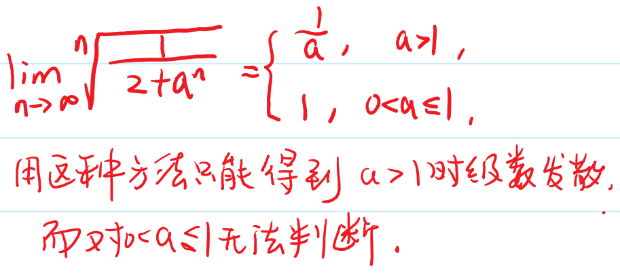 lim n→∞ ⁿ√(1/(2+aⁿ)) = { 1/a, a>1, 1, 0<a≤1,
用这种方法只能得到 a>1时级数发散,
而对0<a≤1无法判断.